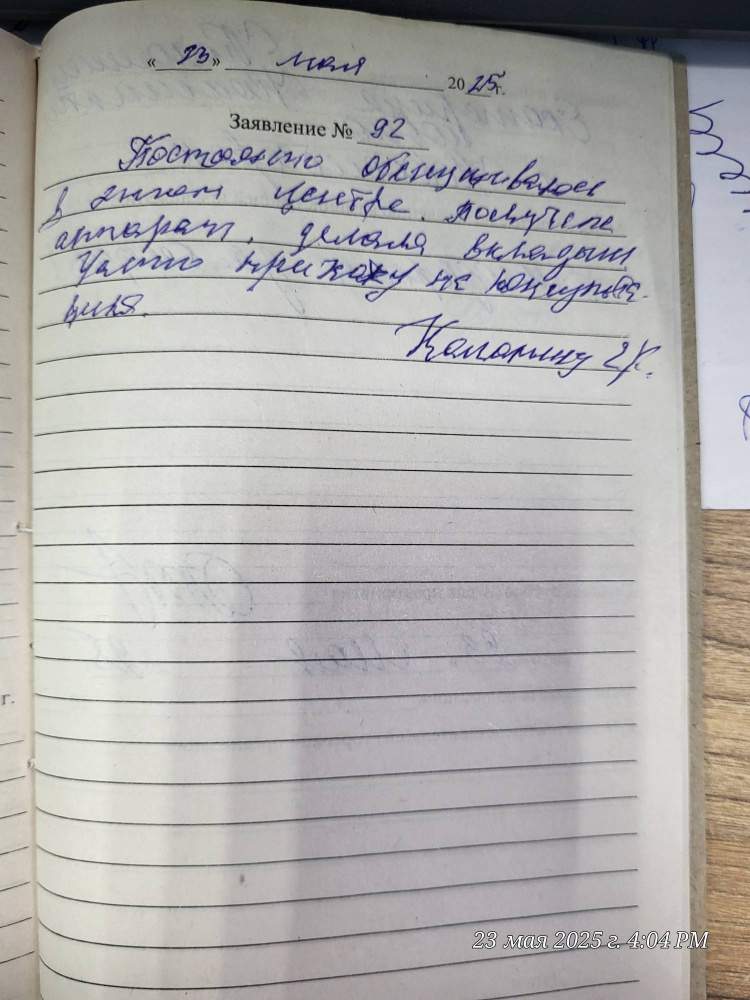 « 23 » мая 2025 г.
Заявление № 92
Постоянно обслуживаюсь
в этом центре. Получила
аппарат, делала вкладыши
Часто прихожу на консульта-
ция.
г.
23 мая 2025 г. 4:04 PM